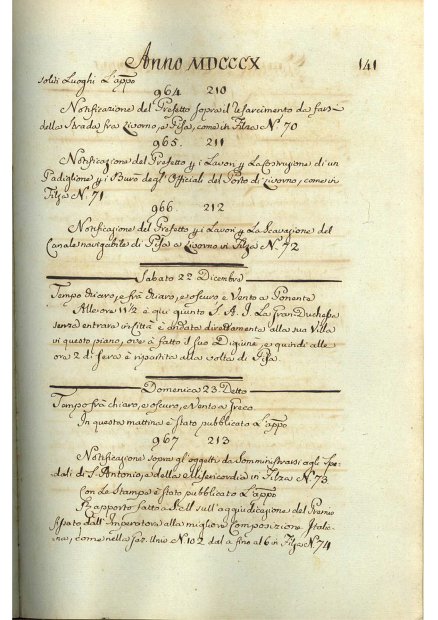 Anno MDCCCX 141
soliti Luoghi L'appo
964 210
Notificazione del Prefetto sopra il resarcimento da farsi
della Strada fra Livorno, e Pisa, come in Filza N.º 70
965. 211
Notificazione del Prefetto p i Lavori p La Costruzione di un
Padiglione p i Burò degl'Officiali del Porto di Livorno, come in
Filza N.º 71
966. 212
Notificazione del Prefetto p i Lavori p La Scavazione del
Canale navigabile di Pisa a Livorno in Filza N.º 72
Sabato 22 Dicembre
Tempo chiaro, e frà chiaro, e oscuro e Vento a Ponente
Alle ore 11 1/2 è qui giunto S. A. I. La Gran Duchessa
senza entrare in Città è andata direttamente alla sua Villa
vi questo piano, ove à fatto il suo Digiune, e quindi alle
ore 2 di sera è ripartita alla volta di Pisa.
Domenica 23 Detto
Tempo frà chiaro, e oscuro, e Vento a Greco
In questa mattina è stato pubblicato L'appo
967 213
Notificazione sopra gl'oggetti da Somministrarsi agli Spe-
dali di S. Antonio, e della Misericordia in Filza N.º 73
Con Le Stampe è stato pubblicato L'appo
Rapporto fatto a sull'aggiudicazione del Premio
fissato dall'Imperatore alla migliore Composizione Itale-
na, come nella N 102 dal a fino al 6 in Filza N.º 74